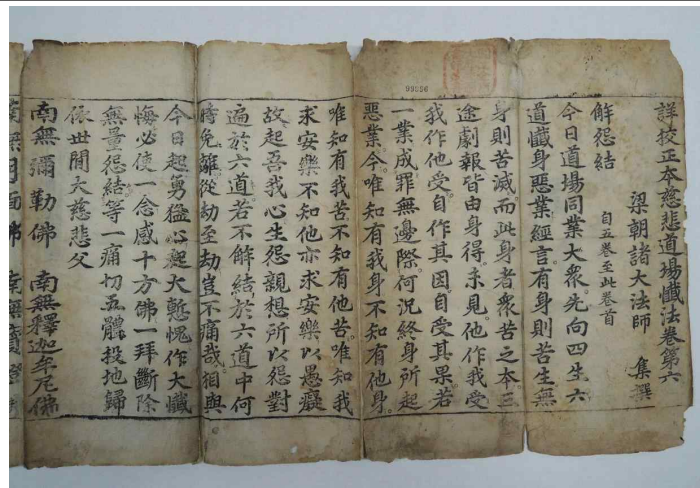 詳校正本慈悲道場懺法卷第六
梁朝諸大法師 集撰
解怨結 自五卷至此卷首
今日道場同業大衆先向四生六
道懺身惡業經言有身則苦生無
身則苦滅而此身者衆苦之本三
途劇報皆由身得未見他作我受
我作他受自作其因自受其果若
一業成罪無邊際何況終身所起
惡業今唯知有我身不知有他身
唯知有我苦不知有他苦唯知我
求安樂不知他亦求安樂以愚癡
故起吾我心生怨親想所以怨對
遍於六道若不解結於六道中何
時免離從劫至劫豈不痛哉相與
今日起勇猛心起大慙愧作大懺
悔必使一念感十方佛一拜斷除
無量怨結等一痛切五體投地歸
依世間大慈悲父
南無彌勒佛 南無釋迦牟尼佛
99556